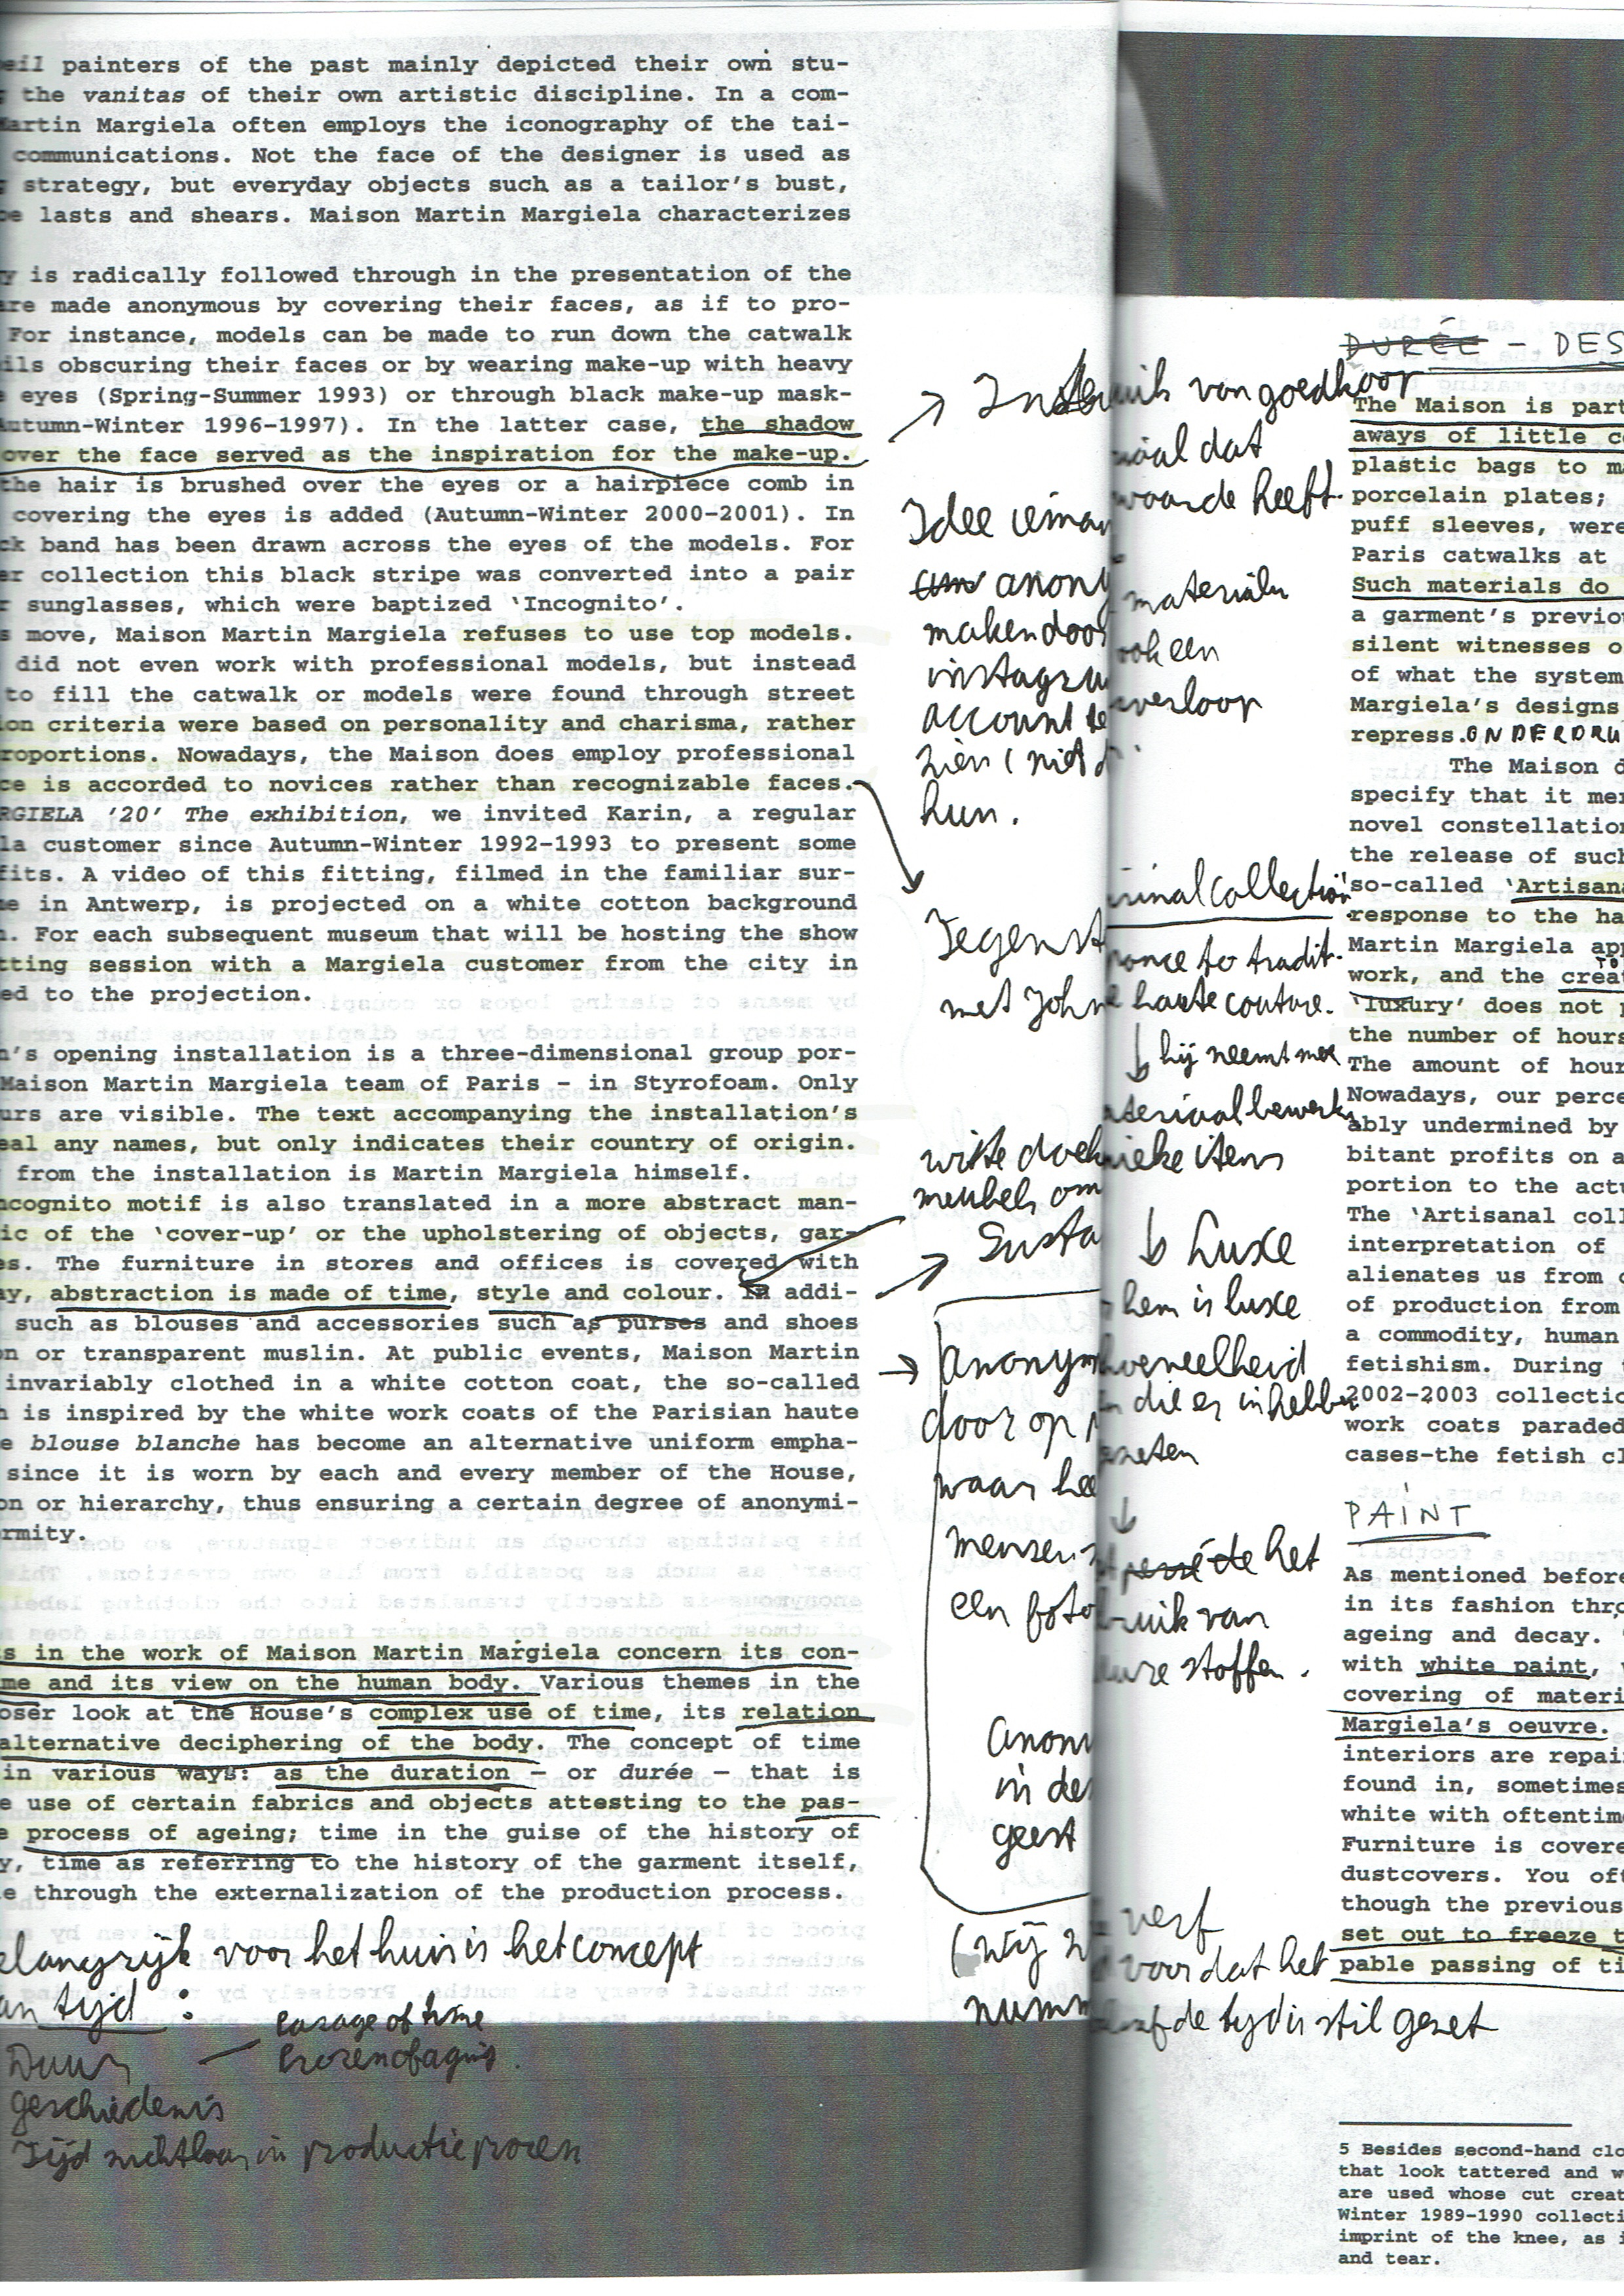 eil painters of the past mainly depicted their own stu-
the vanitas of their own artistic discipline. In a com-
artin Margiela often employs the iconography of the tai-
communications. Not the face of the designer is used as
strategy, but everyday objects such as a tailor's bust,
e lasts and shears. Maison Martin Margiela characterizes
y is radically followed through in the presentation of the
are made anonymous by covering their faces, as if to pro-
For instance, models can be made to run down the catwalk
ils obscuring their faces or by wearing make-up with heavy
eyes (Spring-Summer 1993) or through black make-up mask-
utumn-Winter 1996-1997). In the latter case, the shadow
over the face served as the inspiration for the make-up.
the hair is brushed over the eyes or a hairpiece comb in
covering the eyes is added (Autumn-Winter 2000-2001). In
ck band has been drawn across the eyes of the models. For
er collection this black stripe was converted into a pair
r sunglasses, which were baptized 'Incognito'.
s move, Maison Martin Margiela refuses to use top models.
did not even work with professional models, but instead
to fill the catwalk or models were found through street
on criteria were based on personality and charisma, rather
roportions. Nowadays, the Maison does employ professional
ce is accorded to novices rather than recognizable faces.
RGIELA '20' The exhibition, we invited Karin, a regular
la customer since Autumn-Winter 1992-1993 to present some
fits. A video of this fitting, filmed in the familiar sur-
e in Antwerp, is projected on a white cotton background
. For each subsequent museum that will be hosting the show
tting session with a Margiela customer from the city in
ed to the projection.
n's opening installation is a three-dimensional group por-
Maison Martin Margiela team of Paris – in Styrofoam. Only
urs are visible. The text accompanying the installation's
eal any names, but only indicates their country of origin.
from the installation is Martin Margiela himself.
ncognito motif is also translated in a more abstract man-
ic of the 'cover-up' or the upholstering of objects, gar-
es. The furniture in stores and offices is covered with
ay, abstraction is made of time, style and colour. In addi-
such as blouses and accessories such as purses and shoes
on or transparent muslin. At public events, Maison Martin
invariably clothed in a white cotton coat, the so-called
h is inspired by the white work coats of the Parisian haute
e blouse blanche has become an alternative uniform empha-
since it is worn by each and every member of the House,
on or hierarchy, thus ensuring a certain degree of anonymi-
rmity.
s in the work of Maison Martin Margiela concern its con-
me and its view on the human body. Various themes in the
oser look at the House's complex use of time, its relation
alternative deciphering of the body. The concept of time
in various ways: as the duration – or durée – that is
e use of certain fabrics and objects attesting to the pas-
e process of ageing; time in the guise of the history of
y, time as referring to the history of the garment itself,
e through the externalization of the production process.
elangrijk voor het huis is het concept
an tijd :
Duur
geschiedenis
Tijd zichtbaar in productie proces
Idee ieman
anony
maken door
instagra
account te
zien (niet
hun.
Tegenst
met John
witte doek
meubels om
Susta
anonym
door op
waar hee
mensen
een foto
anon
in de
geest
(wij
numm
uik van goedkoor
iaal dat
waarde heeft.
materialen
ook een
overloop
inal collection
ponce to tradit.
e haute couture.
hij neemt mee
ateriaal bewerk
nieke items
Luxe
hem is luxe
hoeveelheid
n die er in hebben
gneten
het
ruik van
ure stoffen.
verf
voor dat het
de tijd is stil gezet
DURÉE – DES
The Maison is part
aways of little c
plastic bags to m
porcelain plates;
puff sleeves, were
Paris catwalks at
Such materials do
a garment's previo
silent witnesses o
of what the system
Margiela's designs
repress. ONDERDRU
The Maison d
specify that it mer
novel constellation
the release of such
so-called 'Artisana
response to the ha
Martin Margiela app
work, and the creat
'luxury' does not p
the number of hours
The amount of hour
Nowadays, our perce
ably undermined by
bitant profits on a
portion to the actu
The 'Artisanal coll
interpretation of
alienates us from c
of production from
a commodity, human
fetishism. During
2002-2003 collectio
work coats paraded
cases-the fetish cl
PAINT
As mentioned before
in its fashion thro
ageing and decay.
with white paint,
covering of materi
Margiela's oeuvre.
interiors are repai
found in, sometimes
white with oftentim
Furniture is covere
dustcovers. You oft
though the previous
set out to freeze t
pable passing of ti
5 Besides second-hand clo
that look tattered and w
are used whose cut creat
Winter 1989-1990 collecti
imprint of the knee, as i
and tear.